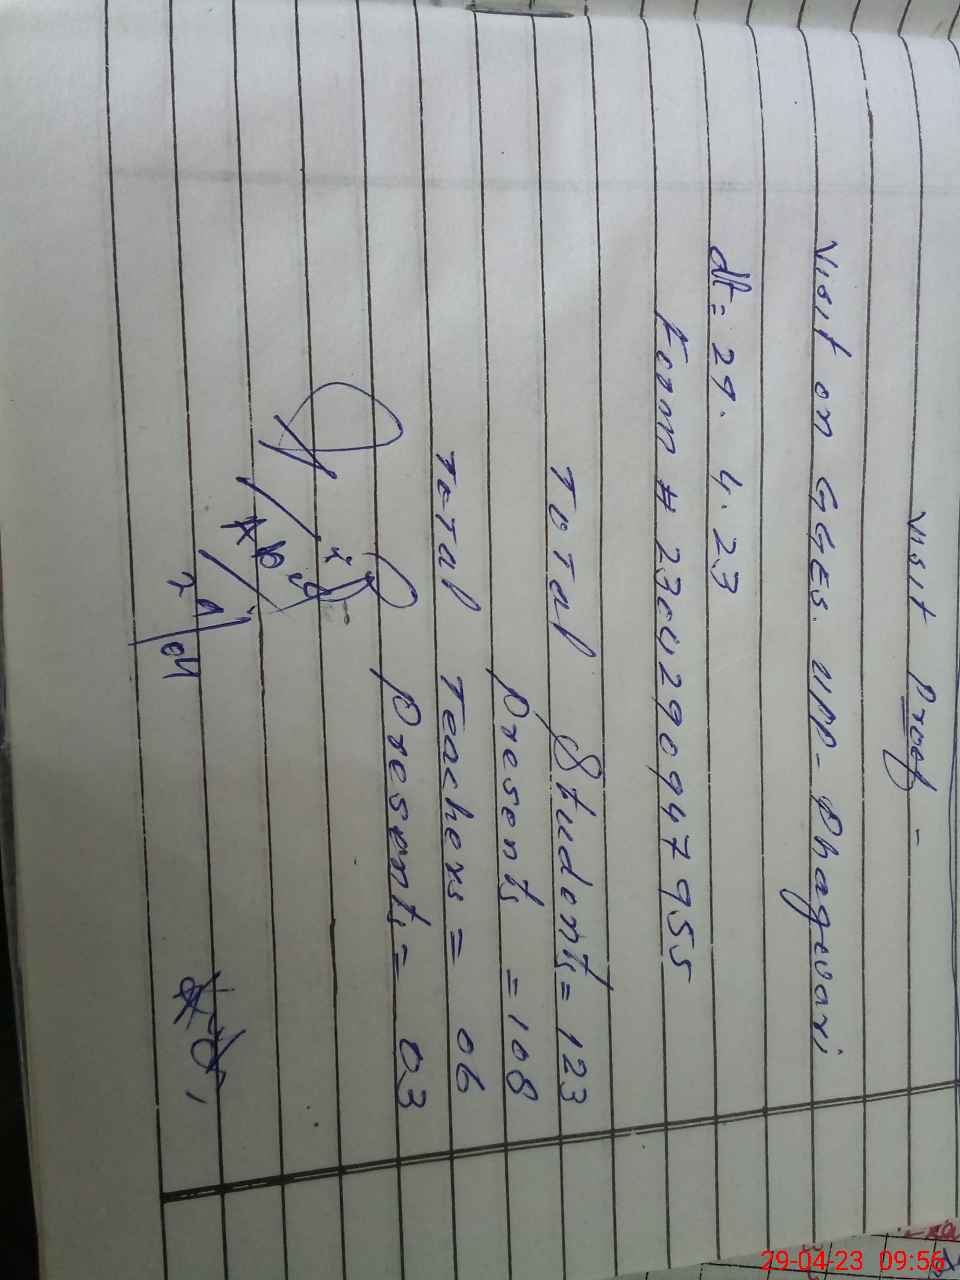 Visit Proof -
Visit on GGES. UPP- Phagwari
dt= 29. 4. 23
Form # 230429094 7955
Total Students= 123
Presents =108
Total Teachers= 06
Presents= 03
29/04
29-04-23 09:56